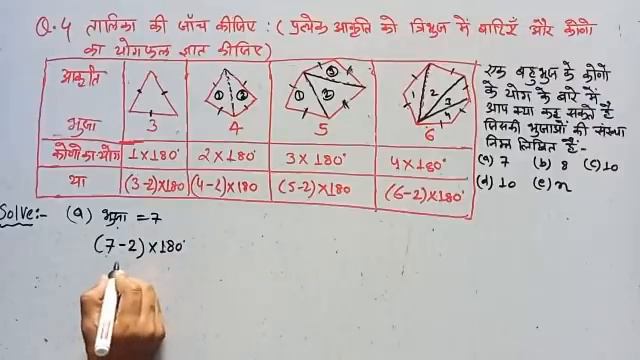 Q.4 तालिका की जाँच कीजिए : (प्रत्येक आकृति को त्रिभुज में बाटिएँ और कोणो
का योगफल ज्ञात कीजिए)
आकृति
① ②
① ② ③
1 2 3 4
भुजा 3 4 5 6
कोणों का योग 1×180° 2×180° 3×180° 4×180°
या (3-2)×180 (4-2)×180 (5-2)×180 (6-2)×180°
एक बहुभुज के कोणो
के योग के बारे में
आप क्या कह सकते हैं
जिसकी भुजाओं की संख्या
निम्न लिखित हैं:-
(a) 7 (b) 8 (c) 10
(d) 10 (e) n
Solve:- (a) भुजा = 7
(7-2)×180°